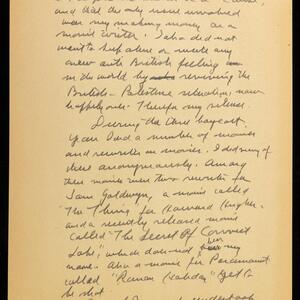 and that the only issue involved
was my making money as a
movie writer. I also did not
want to keep alive or incite any
anew anti British feeling
in the world by reviving the
British - Palestine situation, now
happily over. Therefor my silence.
During the three boycott
years I had a number of movies
and rewrites on movies. I did any of
these anonymously. Among
these movies were two rewrites for
Sam Goldwyn, a movie called
The Thing for Howard Hughes -
and a recently released movie
called "The Secret Of Convict
Lake", which does not bear my
name. Also a movie for Paramount
called "Roman Holiday" yet to
be shot.